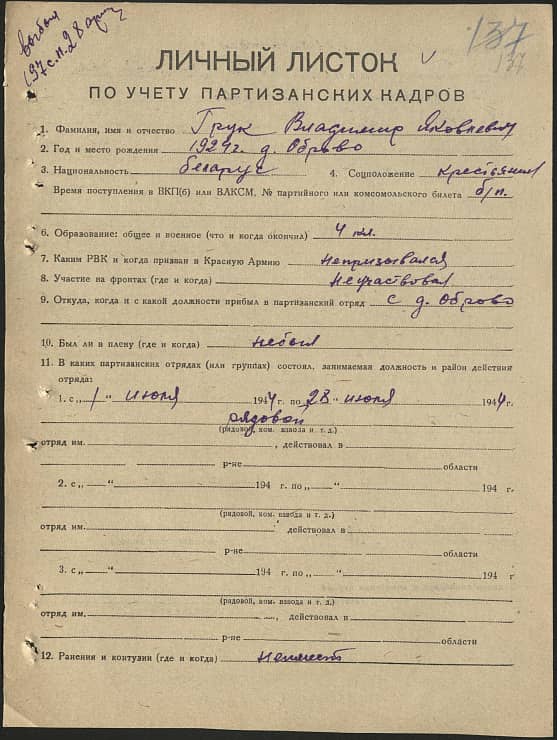 выбыл
197 с.п. 28 арм
137
137
ЛИЧНЫЙ ЛИСТОК
ПО УЧЕТУ ПАРТИЗАНСКИХ КАДРОВ
1. Фамилия, имя и отчество Грук Владимир Яковлевич
2. Год и место рождения 1924 г. д. Оброво
3. Национальность беларус 4. Соцположение крестьянин
Время поступления в ВКП(б) или ВЛКСМ, № партийного или комсомольского билета б/п.
6. Образование: общее и военное (что и когда окончил) 4 кл.
7. Каким РВК и когда призван в Красную Армию непризывался
8. Участие на фронтах (где и когда) неучаствовал
9. Откуда, когда и с какой должности прибыл в партизанский отряд с д. Оброво
10. Был ли в плену (где и когда) небыл
11. В каких партизанских отрядах (или группах) состоял, занимаемая должность и район действия
отряда:
1. с „ 1 “ июля 1944 г. по „28“ июля 1944 г.
рядовой
(рядовой, ком. взвода и т. д.)
отряд им. , действовал в
р-не области
2. с „ “ 194 г. по „ “ 194 г.
(рядовой, ком. взвода и т. д.)
отряд им. , действовал в
р-не области
3. с „ “ 194 г. по „ “ 194 г
(рядовой, ком. взвода и т. д.)
отряд им. , действовал в
р-не области
12. Ранения и контузии (где и когда) неимеет